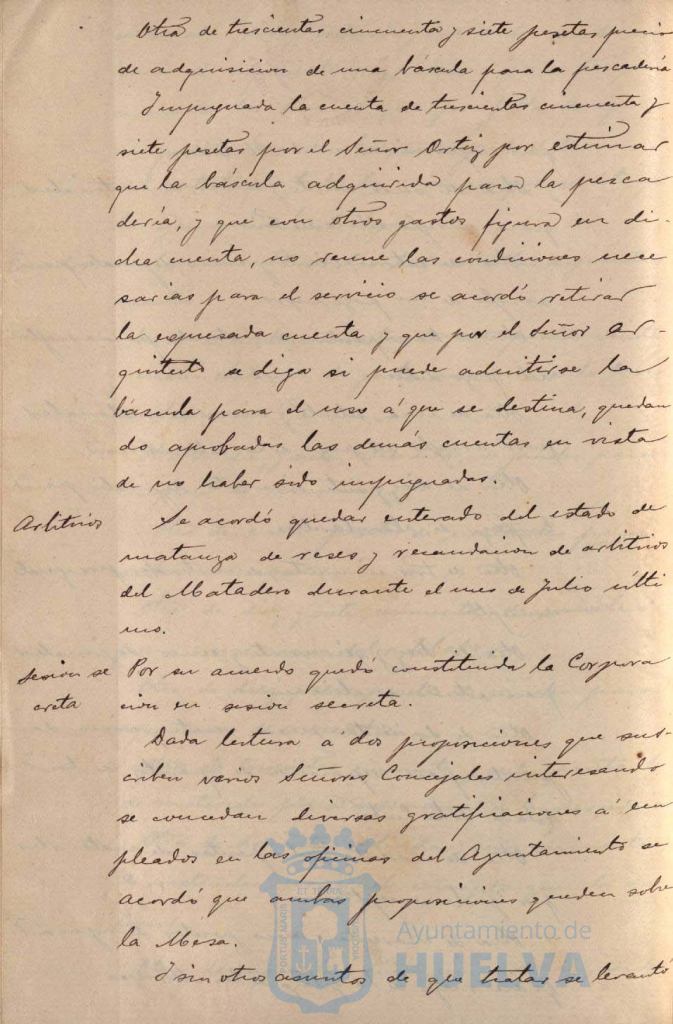 Otra de trescientas cincuenta y siete pesetas precio
de adquisicion de una báscula para la pescadería
Impugnada la cuenta de trescientas cincuenta y
siete pesetas por el Señor Ortiz por estimar
que la báscula adquirida para la pesca
dería, y que con otros gastos figura en di-
cha cuenta, no reune las condiciones nece
sarias para el servicio se acordó retirar
la expresada cuenta y que por el Señor Ar-
quitecto se diga si puede admitirse la
báscula para el uso á que se destina, quedan
do aprobadas las demás cuentas en vista
de no haber sido impugnadas.
Arbitrios
Se acordó quedar enterado del estado de
matanza de reses y recaudacion de arbitrios
del Matadero durante el mes de Julio últi
mo.
Sesion se
creta
Por su acuerdo quedó constituida la Corpora
cion en sesion secreta.
Dada lectura á dos proposiciones que sus-
criben varios Señores Concejales interesando
se concedan diversas gratificaciones á em
pleados en las oficinas del Ayuntamiento se
acordó que ambas proposiciones queden sobre
la Mesa.
Y sin otros asuntos de que tratar se levantó
Ayuntamiento de
HUELVA